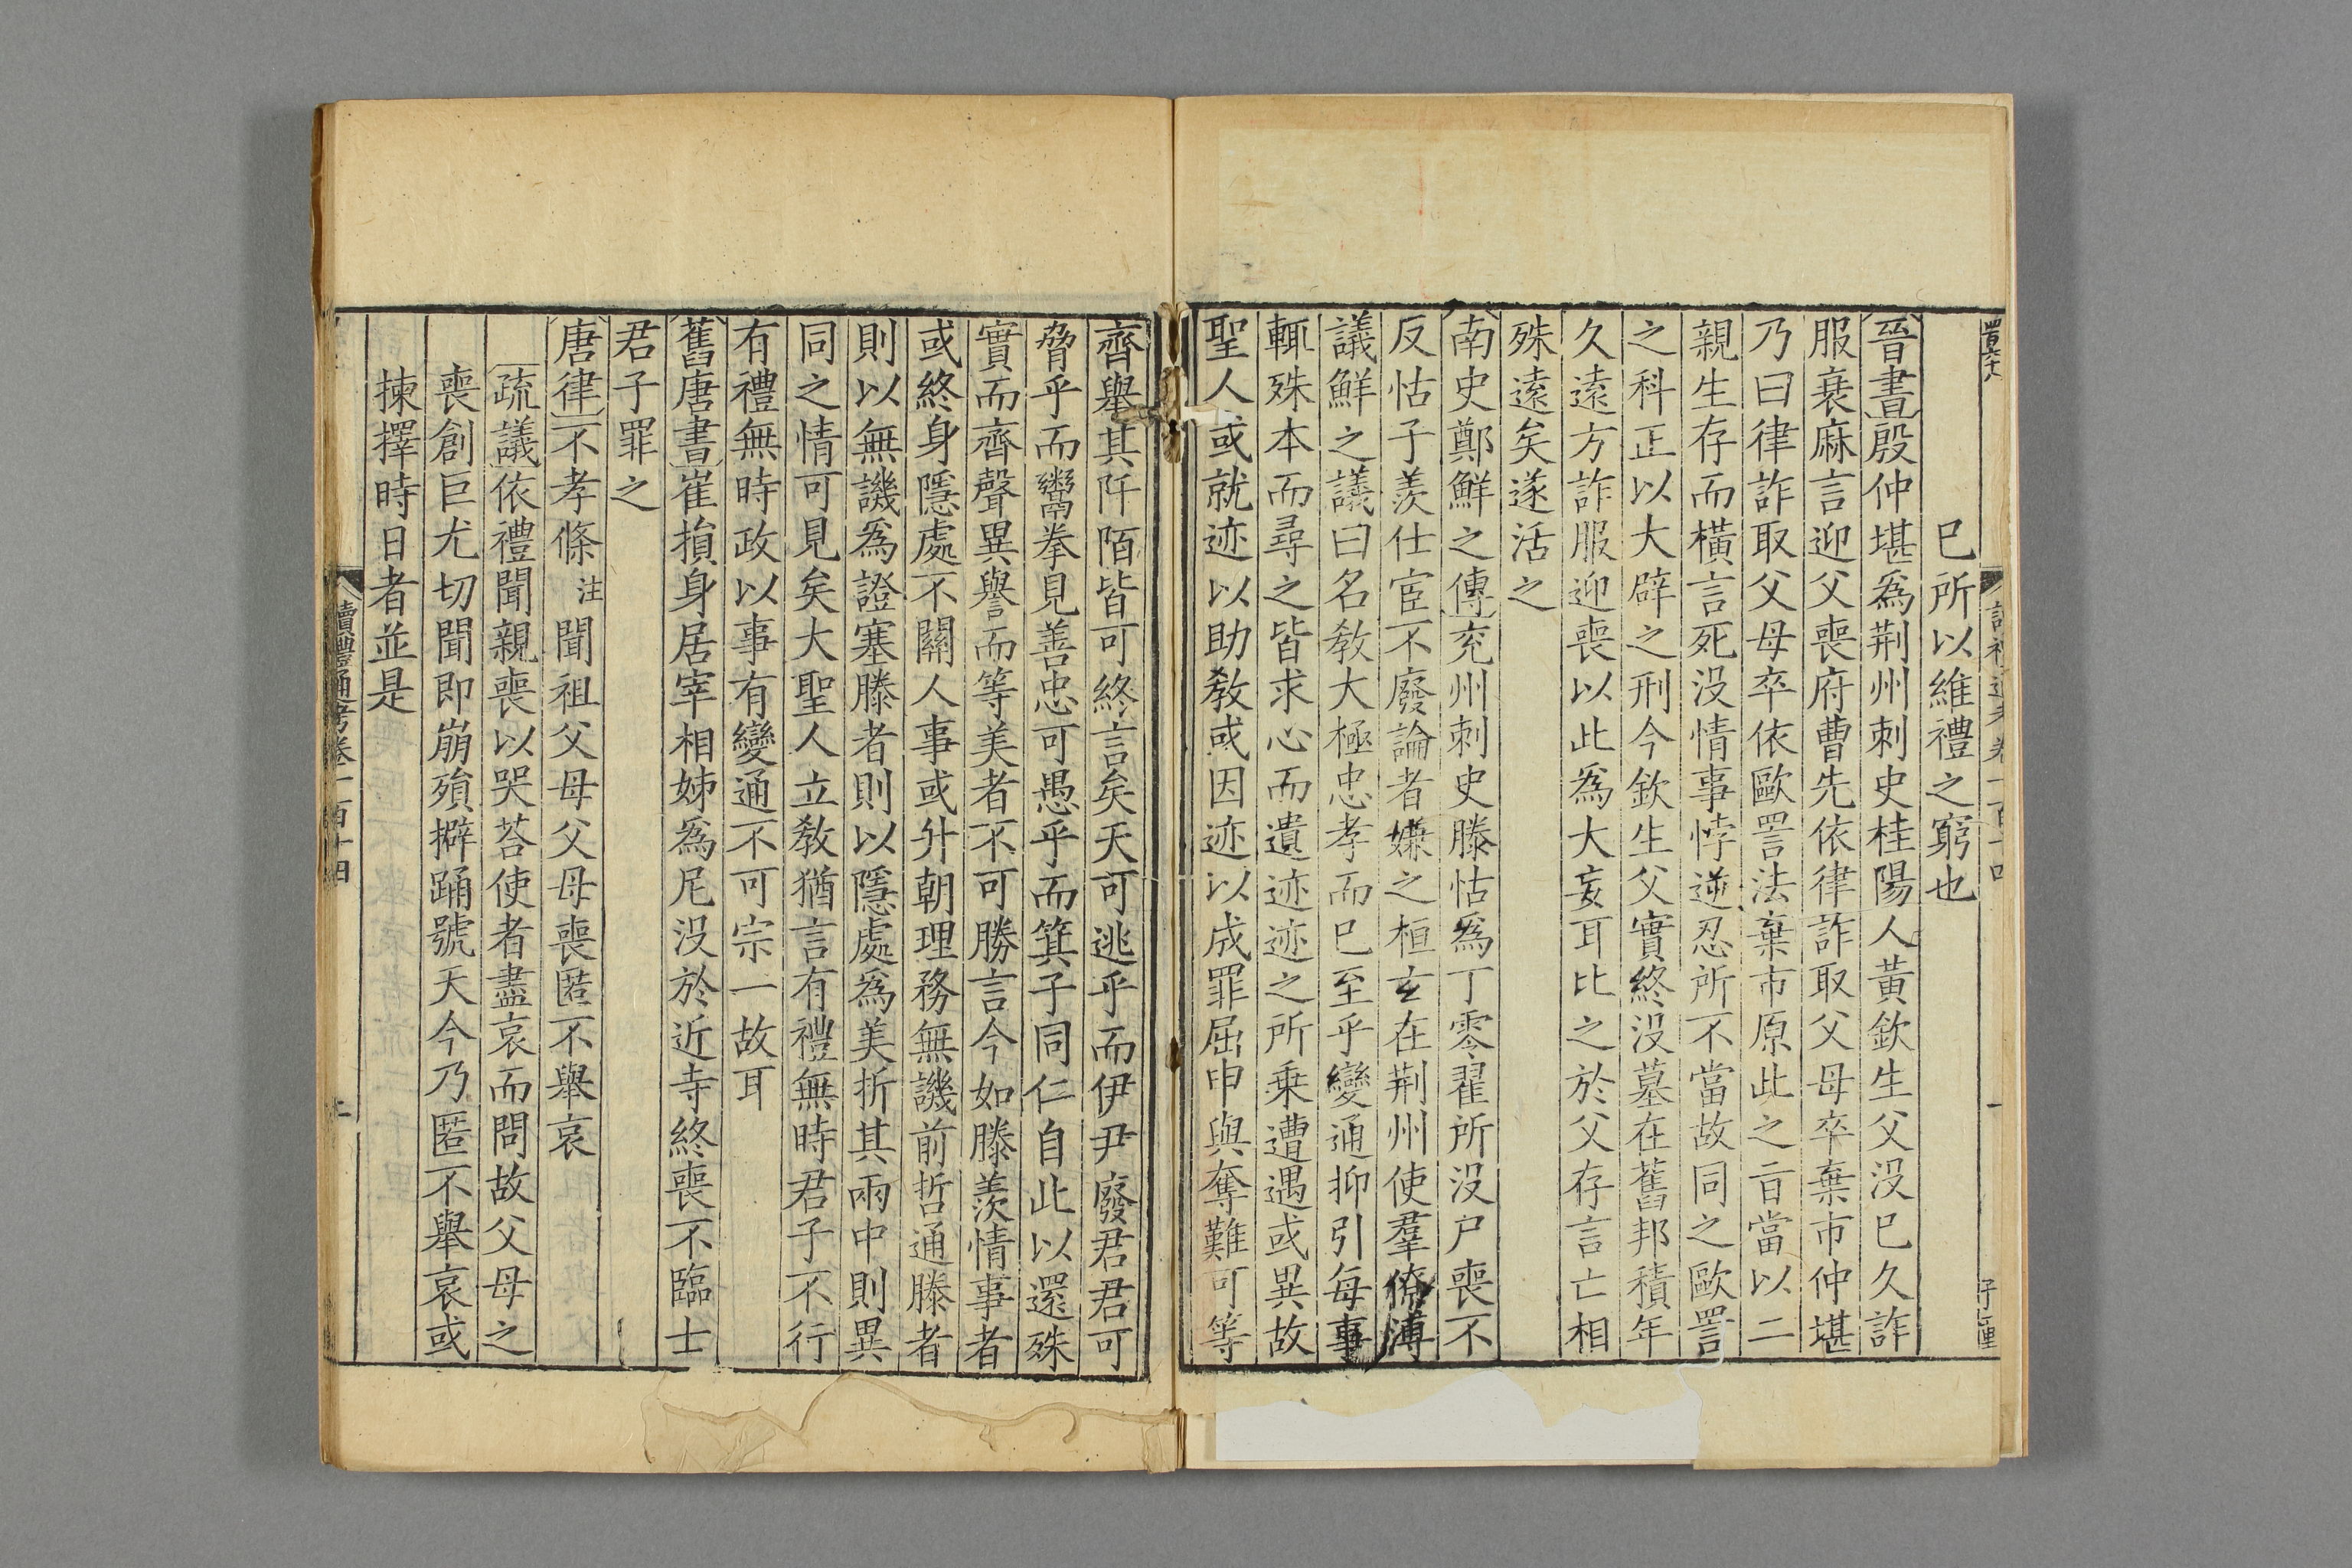 巳所以維禮之窮也
晉書殷仲堪爲荆州刺史桂陽人黃欽生父没巳久詐
服衰麻言迎父喪府曹先依律詐取父母卒棄市仲堪
乃曰律詐取父母卒依歐詈法棄市原此之旨當以二
親生存而橫言死没情事悖逆忍所不當故同之歐詈
之科正以大辟之刑今欽生父實終没墓在舊邦積年
久遠方詐服迎喪以此爲大妄耳比之於父存言亡相
殊遠矣遂活之
南史鄭鮮之傳兖州刺史滕恬爲丁零翟所没户喪不
反恬子羨仕宦不廢論者嫌之桓玄在荆州使羣僚博
議鮮之議曰名敎大極忠孝而巳至乎變通抑引每事
輒殊本而尋之皆求心而遺迹迹之所乗遭遇或異故
聖人或就迹以助敎或因迹以成罪屈申與奪難可等
齊舉其阡陌皆可終言矣天可逃乎而伊尹廢君君可
脅乎而鬻拳見善忠可愚乎而箕子同仁自此以還殊
實而齊聲異譽而等美者不可勝言今如滕羨情事者
或終身隱處不關人事或升朝理務無譏前哲通滕者
則以無譏爲證塞滕者則以隱處爲美折其兩中則異
同之情可見矣大聖人立敎猶言有禮無時君子不行
有禮無時政以事有變通不可宗一故耳
舊唐書崔損身居宰相姊爲尼没於近寺終喪不臨士
君子罪之
唐律不孝條注聞祖父母父母喪匿不舉哀
疏議依禮聞親喪以哭荅使者盡哀而問故父母之
喪創巨尤切聞即崩殞擗踊號天今乃匿不舉哀或
揀擇時日者並是
讀禮通考卷一百十四